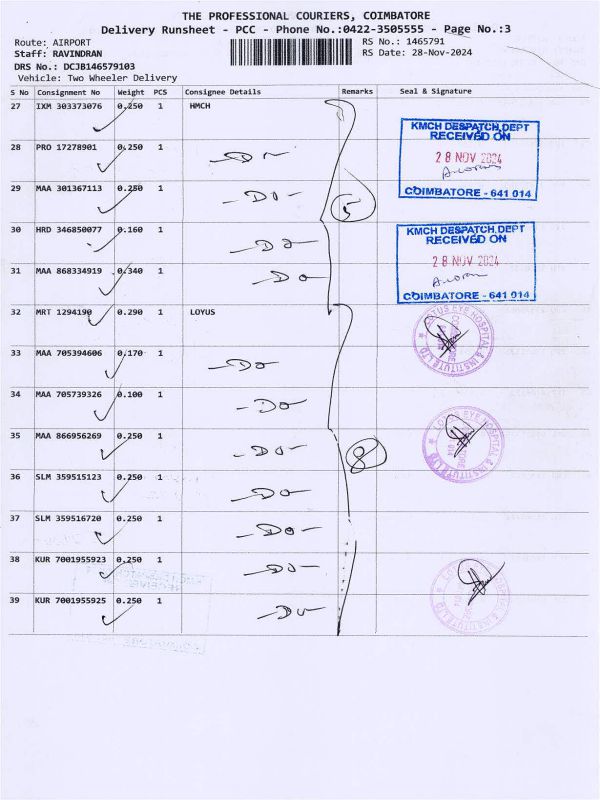 THE PROFESSIONAL COURIERS, COIMBATORE
Delivery Runsheet - PCC - Phone No.:0422-3505555 - Page No.:3
Route: AIRPORT RS No.: 1465791
Staff: RAVINDRAN RS Date: 28-Nov-2024
DRS No.: DCJB146579103
Vehicle: Two Wheeler Delivery
S No Consignment No Weight PCS Consignee Details Remarks Seal & Signature
27 IXM 303373076 0.250 1 HMCH
KMCH DESPATCH DEPT
RECEIVED ON
28 NOV 2024
COIMBATORE - 641 014
28 PRO 17278901 0.250 1 -Do-
29 MAA 301367113 0.250 1 -Do- 5
30 HRD 346850077 0.160 1 -Do-
KMCH DESPATCH DEPT
RECEIVED ON
28 NOV 2024
COIMBATORE - 641 014
31 MAA 868334919 0.340 1 -Do
32 MRT 1294190 0.290 1 LOYUS
LOTUS EYE HOSPITAL & INSTITUTE LTD
33 MAA 705394606 0.170 1 -Do
34 MAA 705739326 0.100 1 -Do
35 MAA 866956269 0.250 1 -Do- 8
LOTUS EYE HOSPITAL & INSTITUTE LTD
36 SLM 359515123 0.250 1 -Do
37 SLM 359516720 0.250 1 -Do-
38 KUR 7001955923 0.250 1 -Do-
39 KUR 7001955925 0.250 1 -Do-